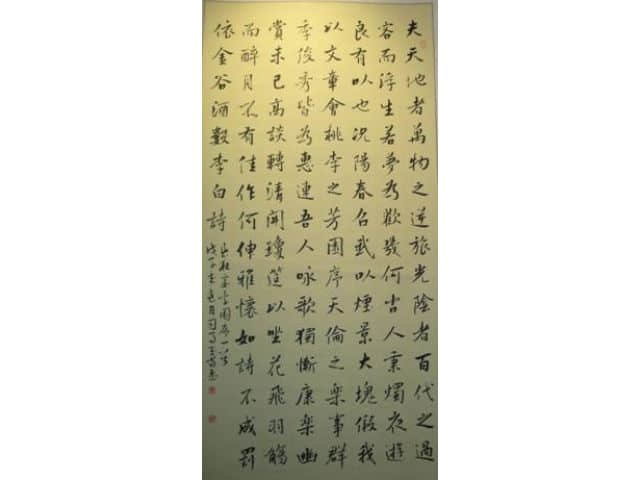 夫天地者萬物之逆旅光陰者百代之過
客而浮生若夢為歡幾何古人秉燭夜遊
良有以也况陽春召我以煙景大塊假我
以文章會桃李之芳園序天倫之樂事群
季俊秀皆為惠連吾人咏歌獨慚康樂幽
賞未已高談轉清開瓊筵以坐花飛羽觴
而醉月不有佳作何伸雅懷如詩不成罰
依金谷酒數李白詩
園序一首
戊子